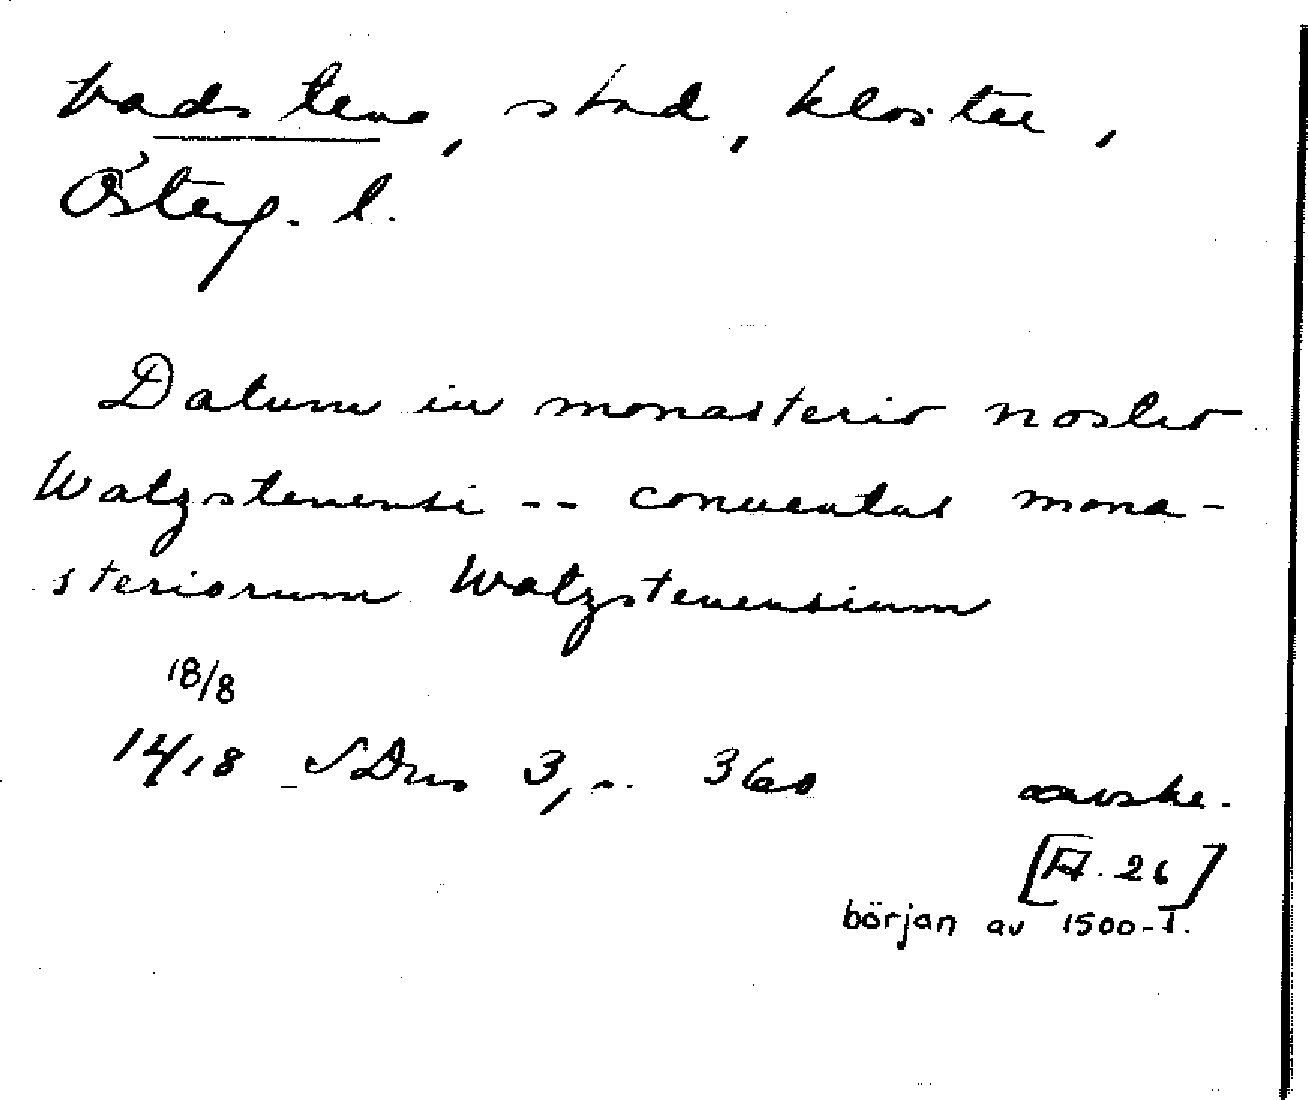 Vadstena, stad, kloster,
Österg. l.
Datum in monasterio nostro
Watzstenensi -- conuentus mona-
steriorum Watzstenensium
18/8
1418 SDns 3, s. 360
avskr.
[A. 26]
början av 1500-t.